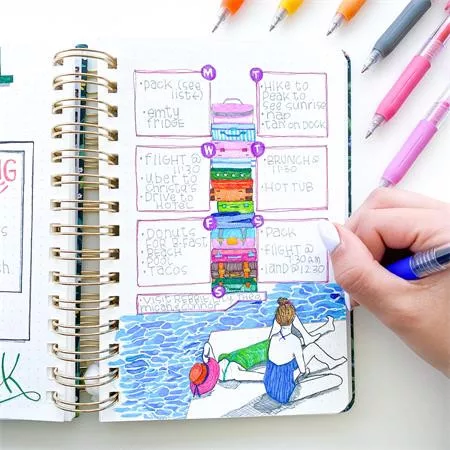 NG
s
sh
k
M
·pack (see
list)
·emty
fridge
T
·Hike to
peak to
see sunrise
nap
·tan on dock
W
·flight @
11:30
·uber to
Christa's
·Drive to
Hotel
T
·Brunch @
11:30
·Hot tub
F
·Donuts
for B-fast
·Beach
·Boat
·Tacos
S
·pack
·flight @
7:30 am
·land @ 12:30
S
·visit